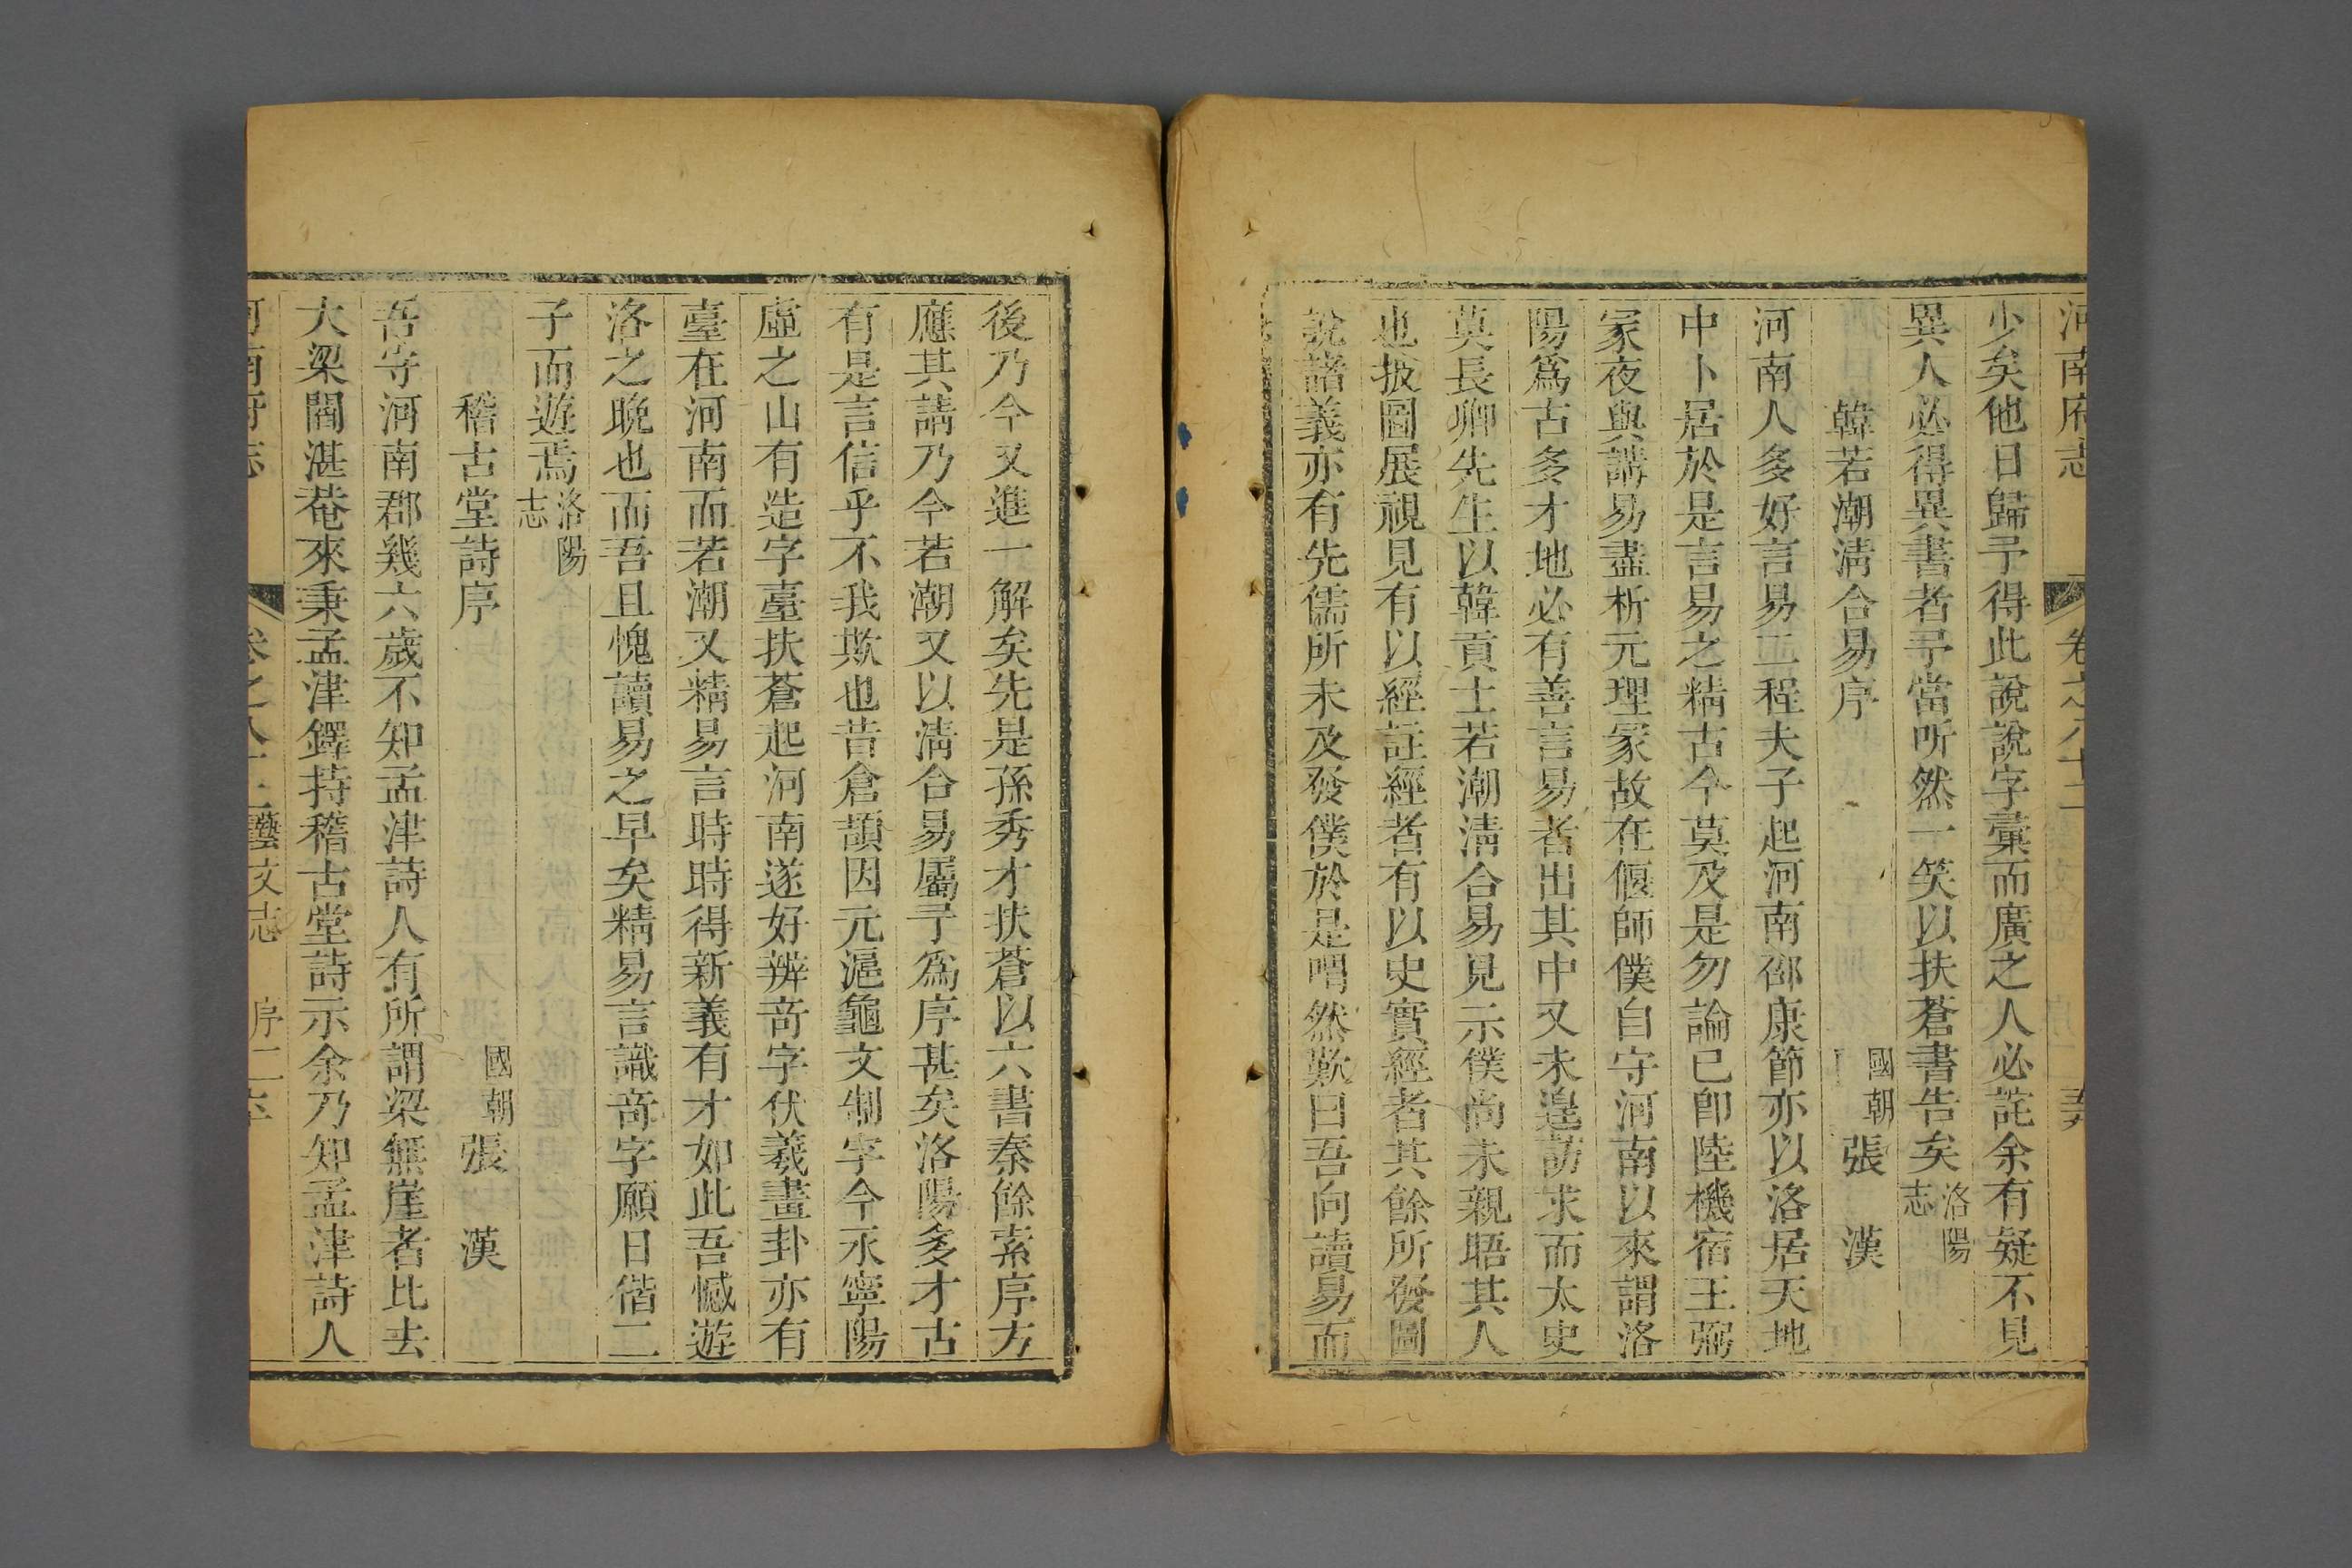 河南府志　卷之八十二
少矣他日歸予得此說說字彙而廣之人必詫余有疑不見
異人必得異書者予當听然一笑以扶蒼書告矣洛陽志
韓若潮淸合易序　國朝張　漢
河南人多好言易二程夫子起河南邵康節亦以洛居天地
中卜居於是言易之精古今莫及是勿論已卽陸機宿王弼
冢夜與講易盡析元理冢故在偃師僕自守河南以來謂洛
陽爲古多才地必有善言易者出其中又未遑訪求而太史
莫長卿先生以韓貢士若潮淸合易見示僕尚未親晤其人
也披圖展視見有以經証經者有以史實經者其餘所發圖
說諸義亦有先儒所未及發僕於是喟然歎曰吾向讀易而
後乃今又進一解矣先是孫秀才扶蒼以六書秦餘索序方
應其請乃今若潮又以淸合易屬予爲序甚矣洛陽多才古
有是言信乎不我欺也昔倉頡因元滬龜文制字今永寧陽
虛之山有造字臺扶蒼起河南遂好辨奇字伏羲畫卦亦有
臺在河南而若潮又精易言時時得新義有才如此吾憾遊
洛之晚也而吾且愧讀易之早矣精易言識奇字願日偕二
子而遊焉洛陽志
稽古堂詩序　國朝張　漢
吾守河南郡幾六歲不知孟津詩人有所謂梁無崖者比去
大梁閻湛菴來秉孟津鐸持稽古堂詩示余乃知孟津詩人
河南府志　卷之八十二藝文志　序二